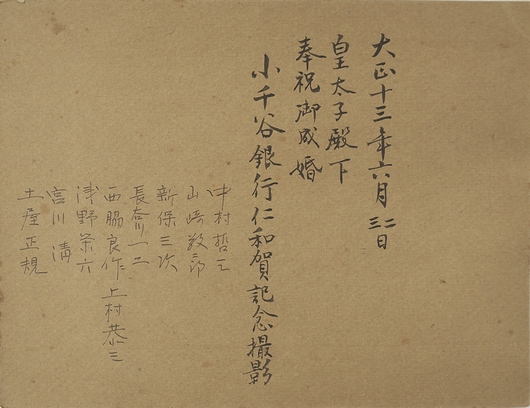 大正十三年六月二三日
皇太子殿下
奉祝御成婚
小千谷銀行仁和賀記念撮影
中村哲三
山崎敬三郎
新保三次
長奈川一二
西脇良作
上村恭三
浅野栄六
宮川清
土屋正規